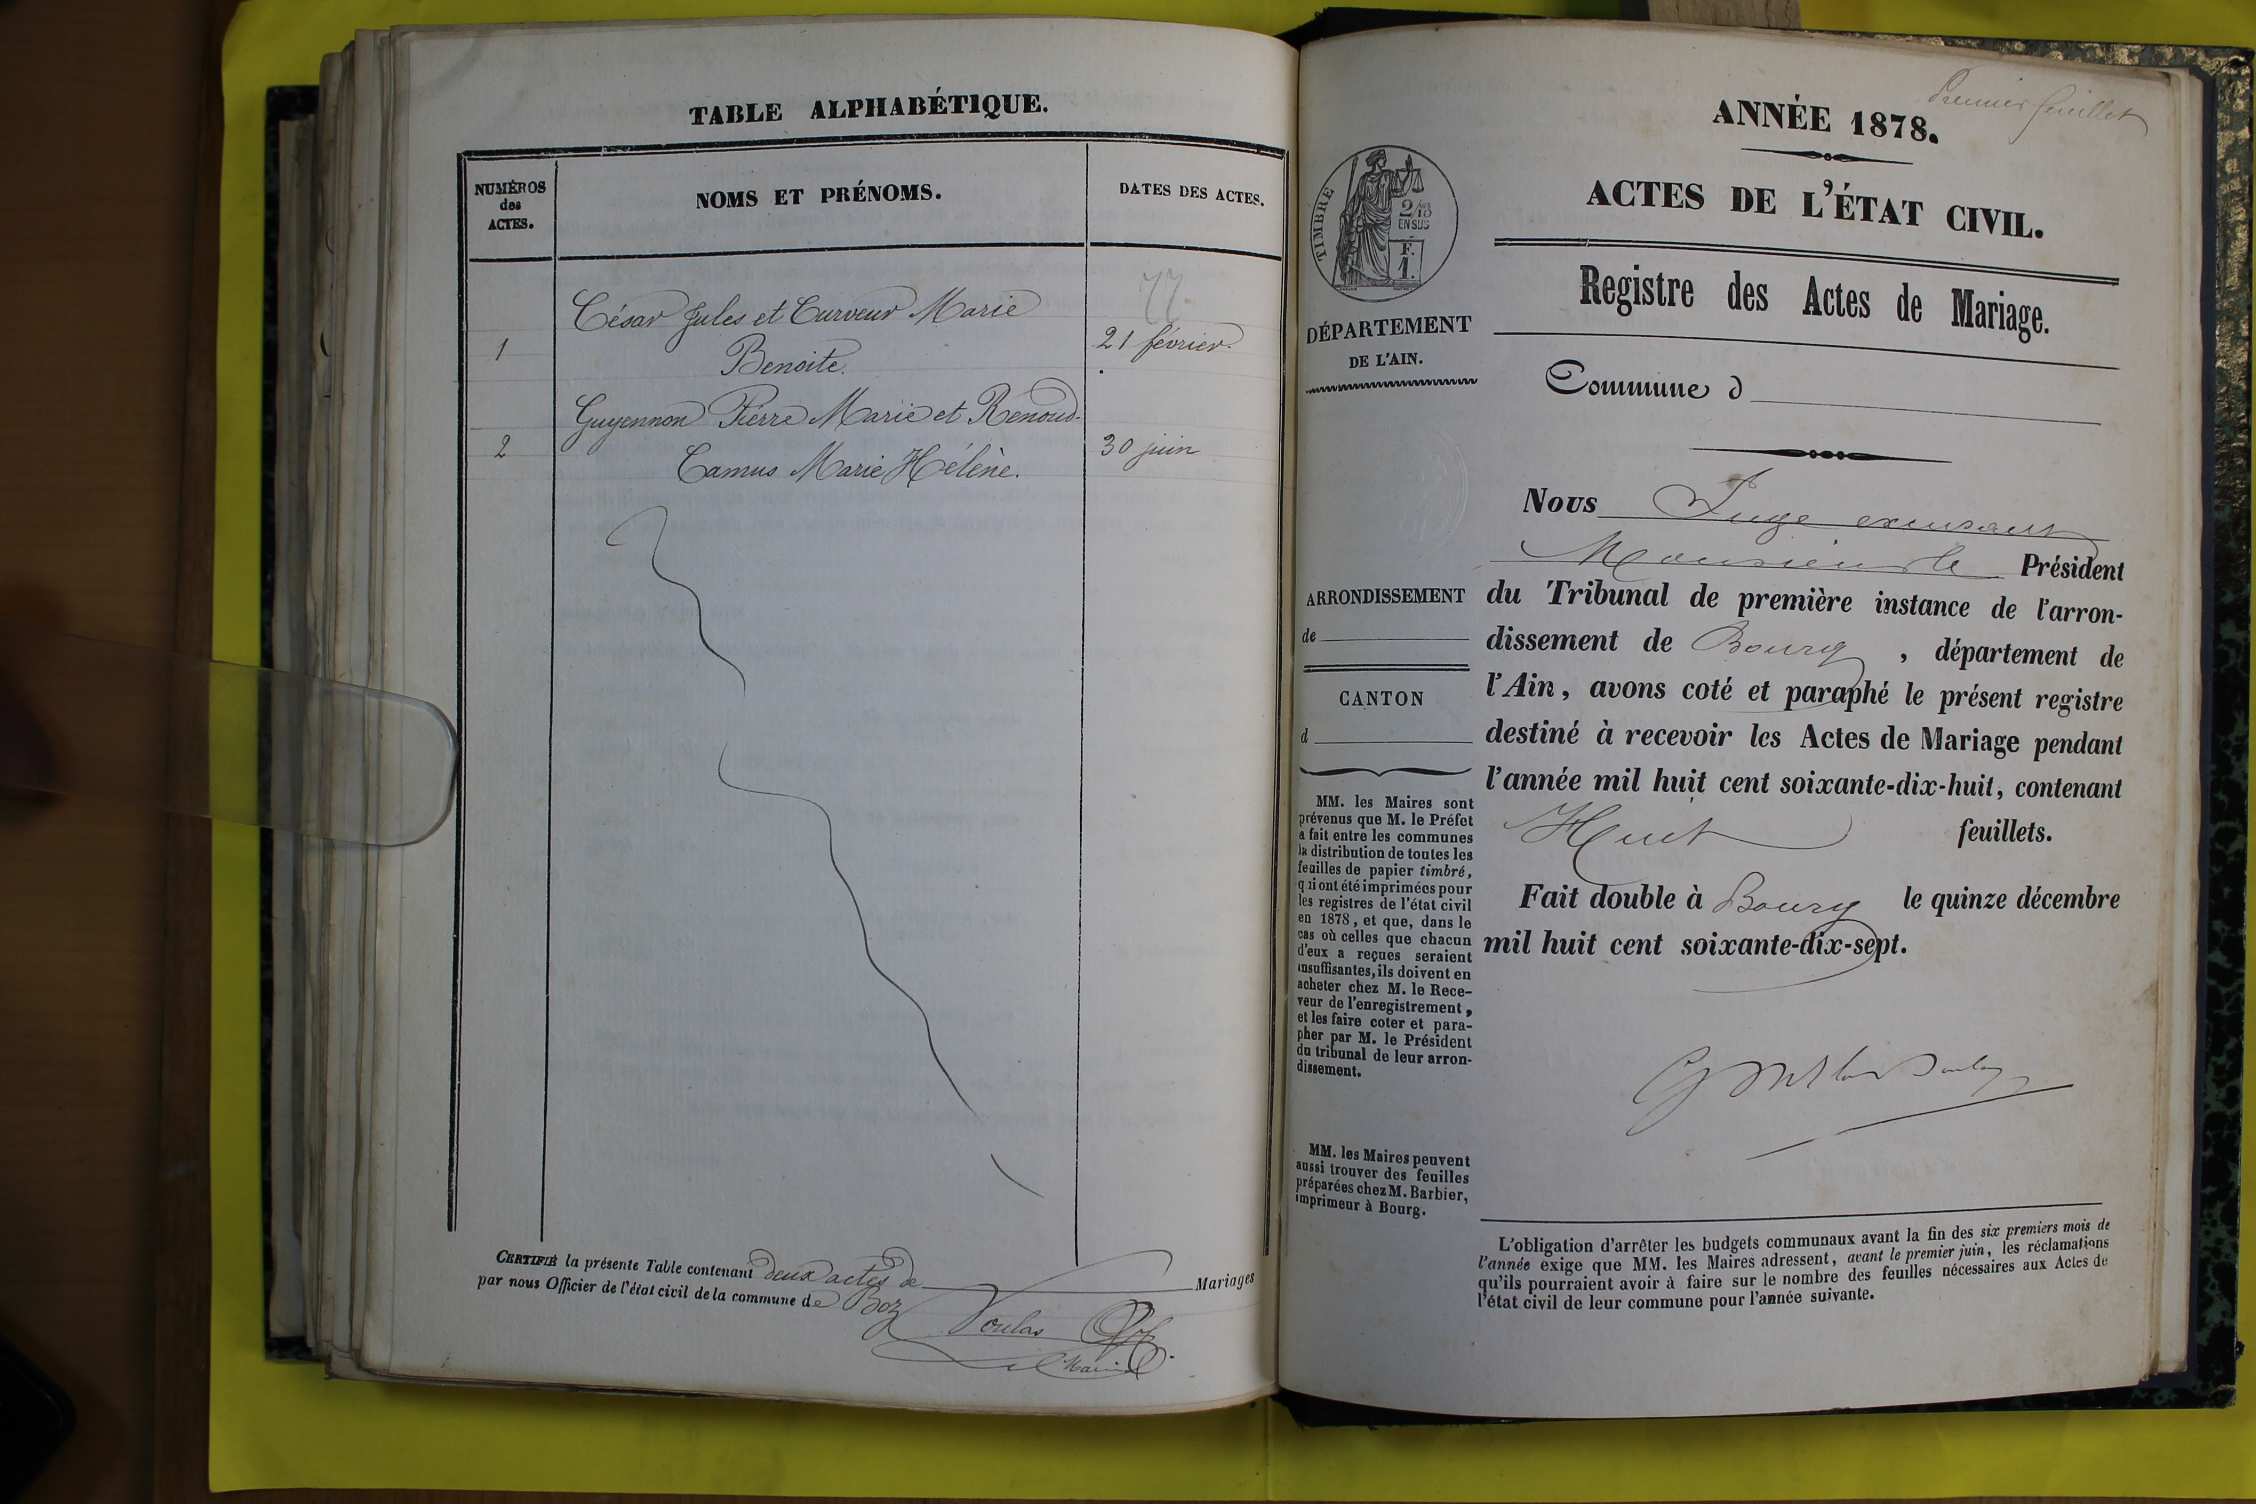 TABLE ALPHABÉTIQUE.
NUMÉROS
des
ACTES.
NOMS ET PRÉNOMS.
DATES DES ACTES.
77
César Jules et Curveur Marie
1
Benoite.
21 février.
Guyennon Pierre Marie et Renoud-
2
Camus Marie Hélène.
30 juin
CERTIFIÉ la présente Table contenant deux actes de Mariages
par nous Officier de l'état civil de la commune de Boz
Maire
Premier feuillet
ANNÉE 1878.
ACTES DE L'ÉTAT CIVIL.
Registre des Actes de Mariage.
TIMBRE
2/10
EN SUS
F.
1.
DÉPARTEMENT
DE L'AIN.
ARRONDISSEMENT
de
CANTON
d
MM. les Maires sont
prévenus que M. le Préfet
a fait entre les communes
la distribution de toutes les
feuilles de papier timbré,
qui ont été imprimées pour
les registres de l'état civil
en 1878, et que, dans le
cas où celles que chacun
d'eux a reçues seraient
insuffisantes, ils doivent en
acheter chez M. le Rece-
veur de l'enregistrement,
et les faire coter et para-
pher par M. le Président
du tribunal de leur arron-
dissement.
MM. les Maires peuvent
aussi trouver des feuilles
préparées chez M. Barbier,
imprimeur à Bourg.
Commune d
Nous Juge excusant
Monsieur le Président
du Tribunal de première instance de l'arron-
dissement de Bourg, département de
l'Ain, avons coté et paraphé le présent registre
destiné à recevoir les Actes de Mariage pendant
l'année mil huit cent soixante-dix-huit, contenant
Huit feuillets.
Fait double à Bourg le quinze décembre
mil huit cent soixante-dix-sept.
L'obligation d'arrêter les budgets communaux avant la fin des six premiers mois de
l'année exige que MM. les Maires adressent, avant le premier juin, les réclamations
qu'ils pourraient avoir à faire sur le nombre des feuilles nécessaires aux Actes de
l'état civil de leur commune pour l'année suivante.